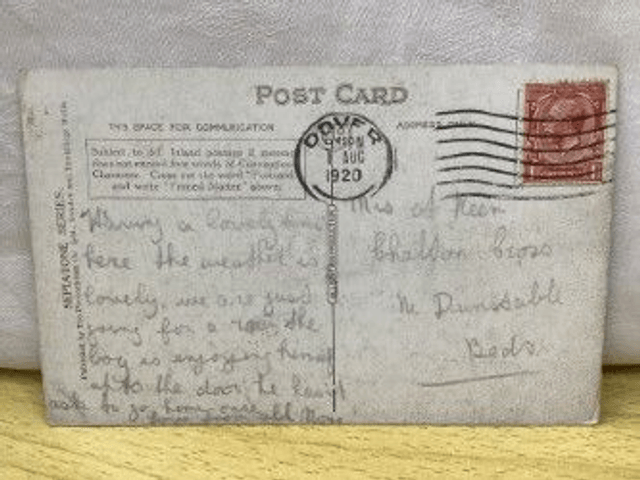 POST CARD
THIS SPACE FOR COMMUNICATION
ADDRESS ONLY
Subject to ½d. Inland postage if message
does not exceed five words of Conventional
Character. Cross out the word "Postcard"
and write "Printed Matter" above.
DOVER
AUG
1920
SEPIATONE SERIES.
Having a lovely time
here the weather is
lovely, we are just
going for a the
boy is enjoying
up to the door he
ask to go home once
Mrs Keen
Chalton Cross
Nr Dunstable
Beds.